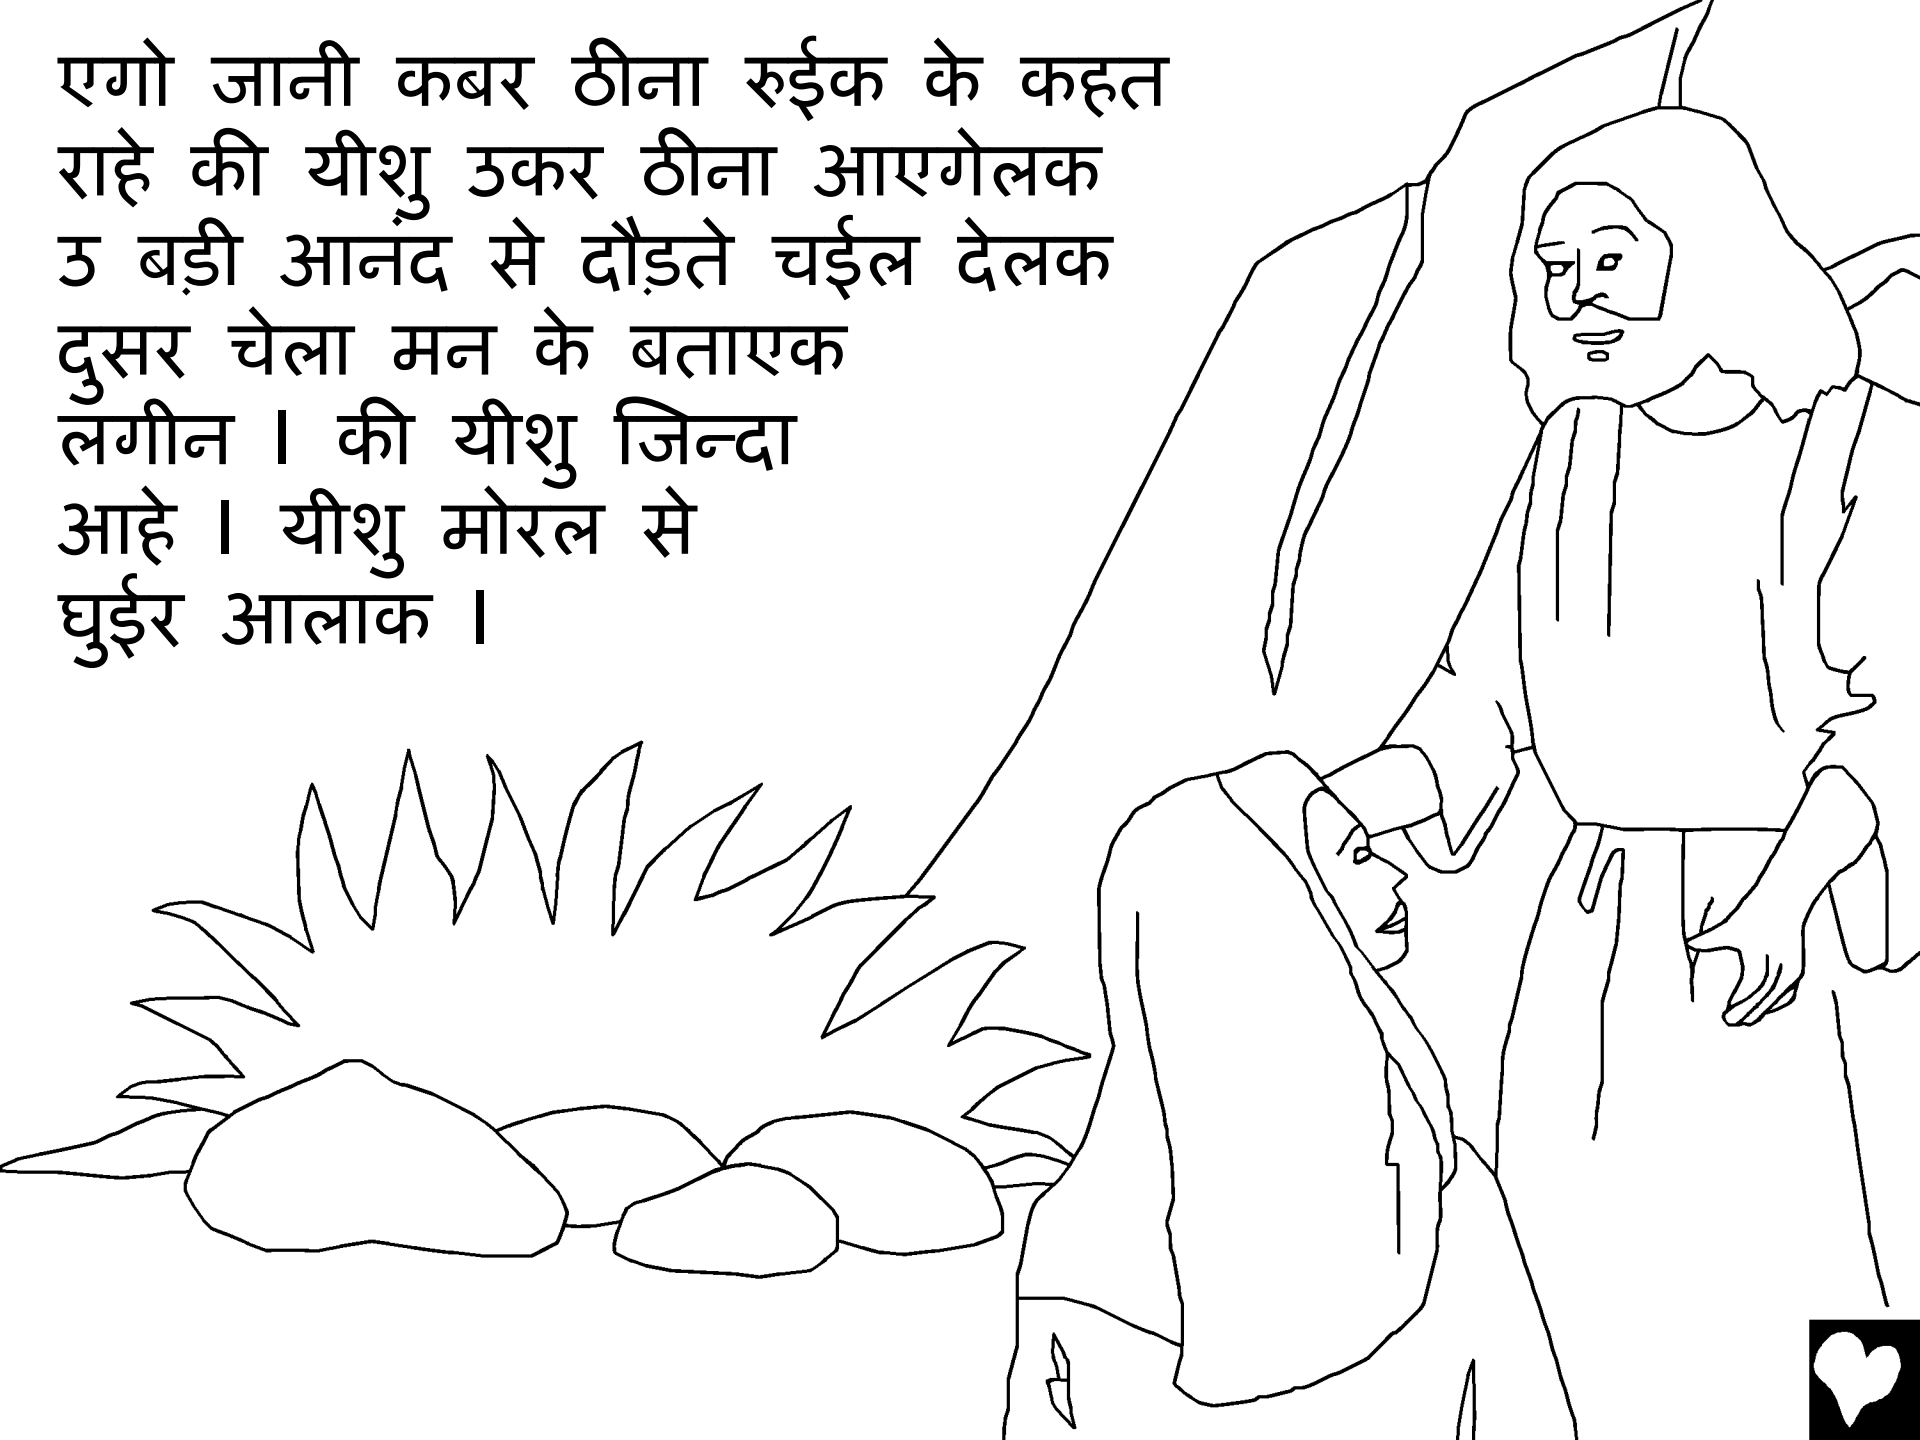 एगो जानी कबर ठीना रुईक के कहत
राहे की यीशु उकर ठीना आएगेलक
उ बड़ी आनंद से दौड़ते चईल देलक
दुसर चेला मन के बताएक
लगीन I की यीशु जिन्दा
आहे I यीशु मोरल से
घुईर आलाक I